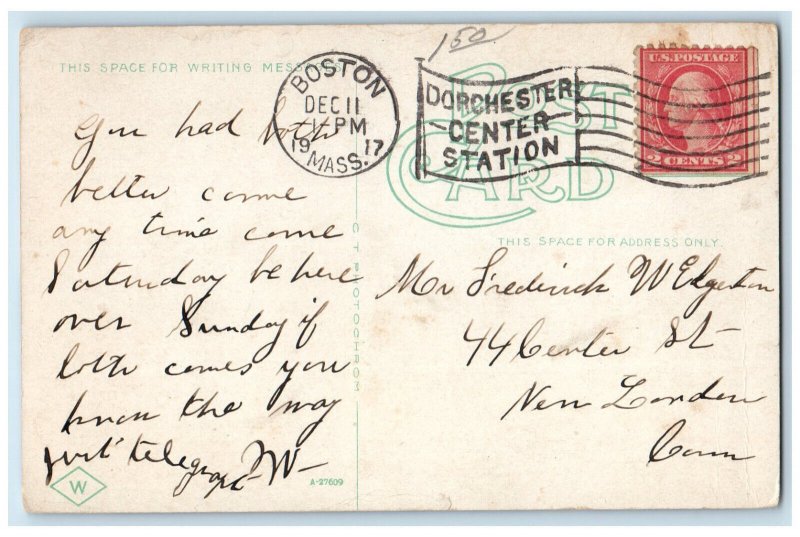 150
THIS SPACE FOR WRITING MESSAGES
POST
CARD
BOSTON
DEC 11
11 PM
19 17
MASS.
DORCHESTER
CENTER
STATION
U.S. POSTAGE
2 CENTS 2
THIS SPACE FOR ADDRESS ONLY.
You had both
better come
any time come
Saturday be here
over Sunday if
both comes you
know the way
just telegraph - W -
C T PHOTOCHROM
Mr Frederick W Edgerton
44 Center St -
New London
Conn
W
A-27609